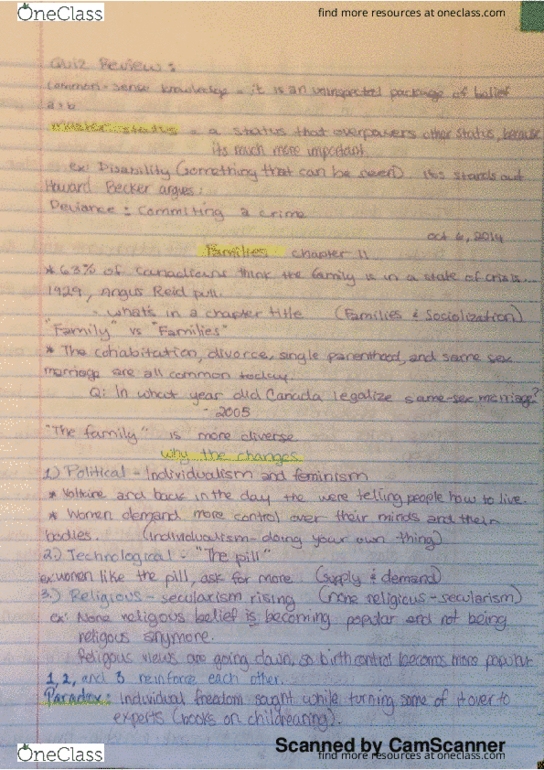 OneClass
find more resources at oneclass.com
Quiz Review:
common-sense knowledge - it is an uninspected package of belief
a=b
master status = a status that overpowers other status, because
its much more important.
ex: Disability (something that can be seen). its stands out
Howard Becker argues:
Deviance: Commiting a crime
oct 6, 2014
Families chapter 11
* 63% of Canadieans think the family is in a state of crisis...
1929, Angus Reid pull.
- whats in a chapter title (Families & Sociolization)
"Family" vs "Families"
* The cohabitation, divorce, single parenthood, and same sex
marriage are all common today.
Q: In what year did Canada legalize same-sex marriage?
- 2005
"The family" is more diverse
why the changes
1) Political - Individualism and feminism
* Voltaire and back in the day the were telling people how to live.
* Women demand more control over their minds and their
bodies. (individualism - doing your own thing)
2.) Technological - "The pill"
ex: women like the pill, ask for more (supply & demand)
3.) Religious - secularism rising (none religious - secularism)
ex: None religous belief is becoming popular and not being
religous anymore.
Religous views are going down, so birth control becomes more popular
1, 2, and 3 reinforce each other.
Paradox: Individual freedom saught while turning some of it over to
experts (books on childrearing).
Scanned by CamScanner
OneClass
find more resources at oneclass.com